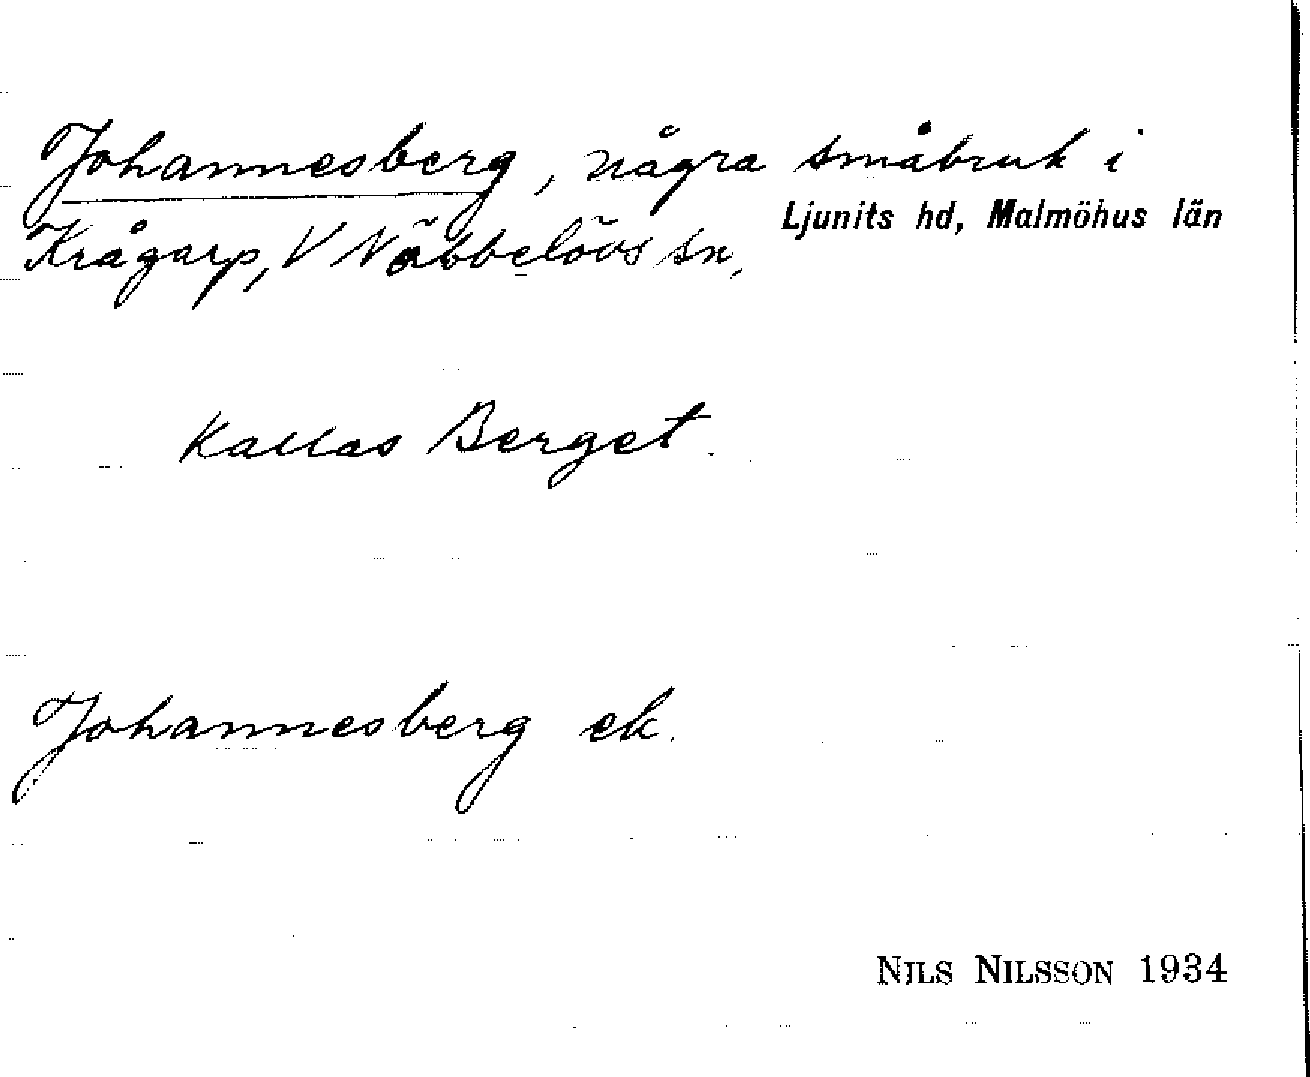 Johannesberg, några småbruk i
Krågarp, V Näbbelövs sn, Ljunits hd, Malmöhus län
Kallas Berget.
Johannesberg ek.
NILS NILSSON 1934